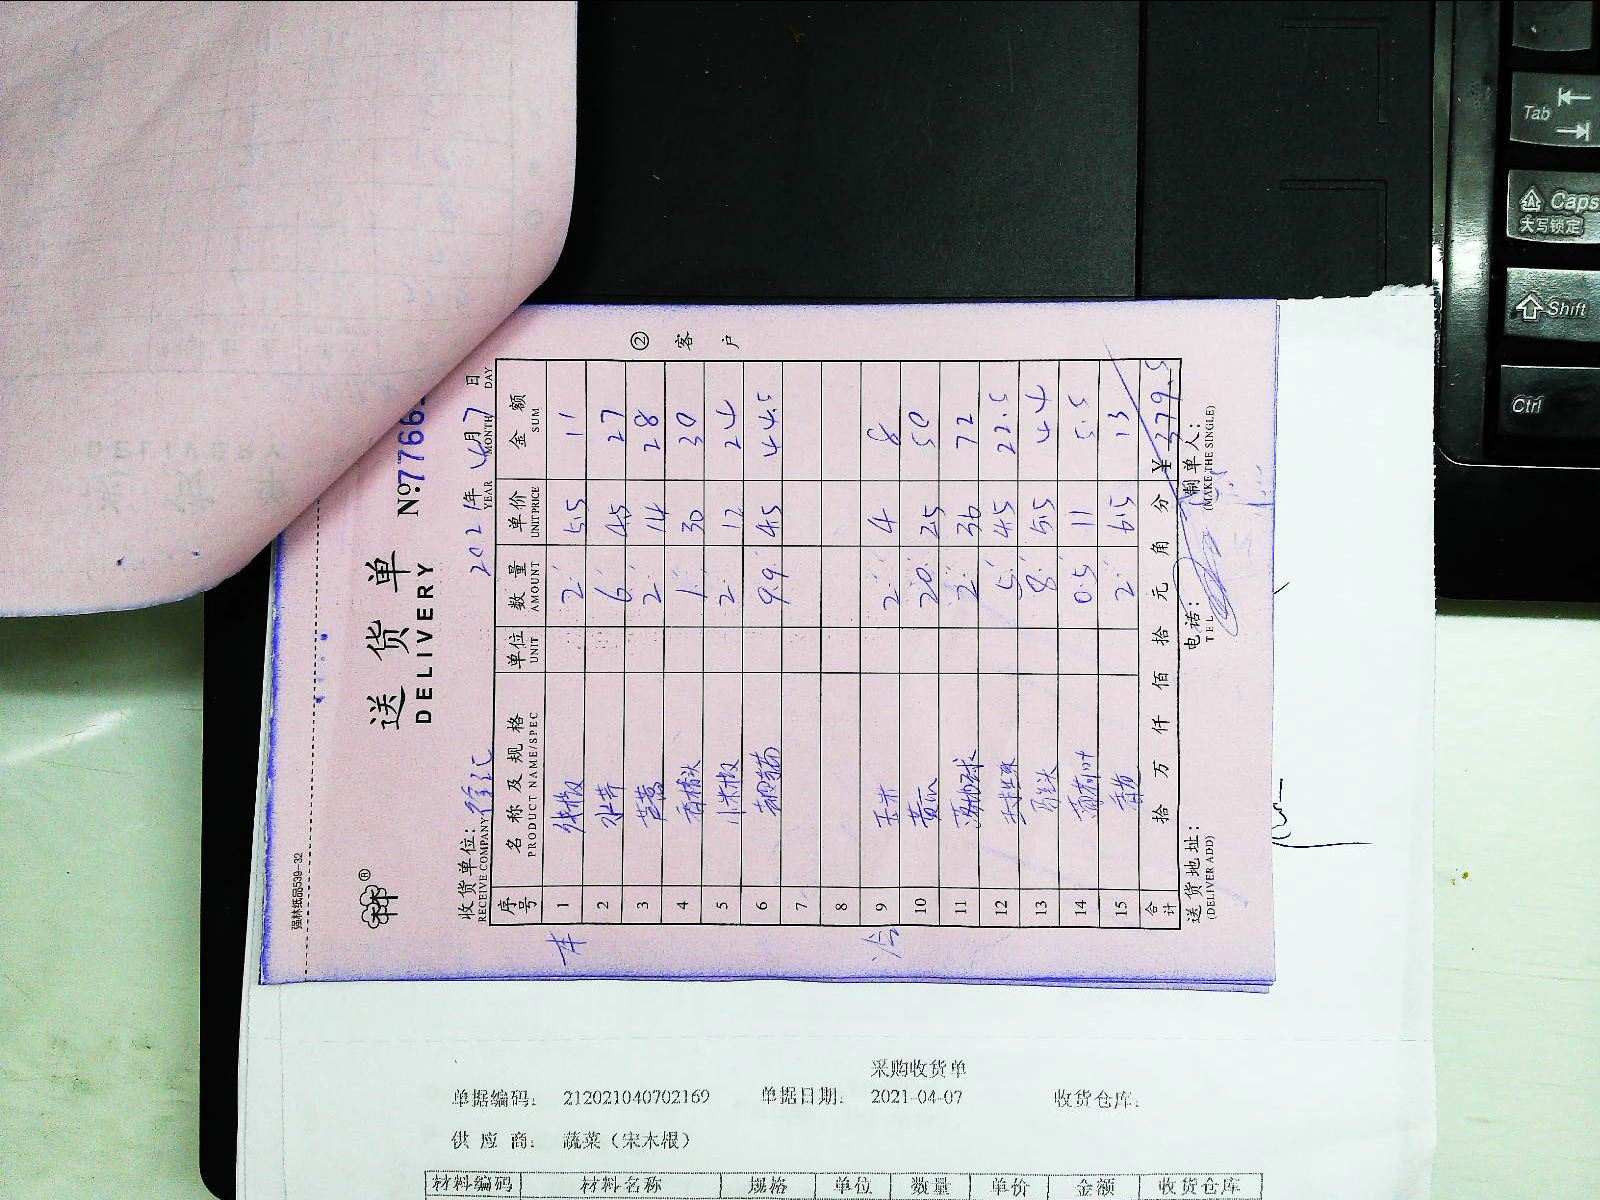 强林纸品539-32
②客户
送货单
DELIVERY
№:7766
收货单位: 徐汇 2021年4月7日
RECEIVE COMPANY YEAR MONTH DAY
序号 名称及规格 单位 数量 单价 金额
PRODUCT NAME/SPEC UNIT AMOUNT UNIT PRICE SUM
1 2 5.5 11
2 水芹 6 4.5 27
3 芦蒿 2 14 28
4 1 30 30
5 小米椒 2 12 24
6 9.9 4.5 44.5
7
8
9 玉米 2 4 8
10 黄瓜 20 2.5 50
11 2 36 72
12 5 4.5 22.5
13 8 5.5 44
14 0.5 11 5.5
15 2 6.5 13
合计 拾 万 仟 佰 拾 元 角 分 ¥379.5
送货地址: 电话: 制单人:
(DELIVER ADD) TEL (MAKE THE SINGLE)
采购收货单
单据编码: 212021040702169 单据日期: 2021-04-07 收货仓库:
供应商: 蔬菜(宋木根)
材料编码 材料名称 规格 单位 数量 单价 金额 收货仓库
Tab
Caps
大写锁定
Shift
Ctrl